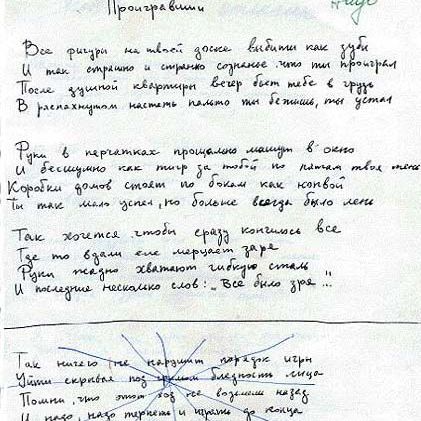 Проигравший
Все фигуры на твоей доске выбиты как зубы
И так страшно и странно сознанье что ты проиграл
После душной квартиры ветер бьёт тебе в грудь
В распахнутом настежь пальто ты бежишь, ты устал
Руки в перчатках прощально машут в окно
И бесшумно как тигр за тобой по пятам твоя тень
Коробки домов стоят по бокам как конвой
Ты так мало успел, но больше всегда было лень
Так хочется чтобы сразу кончилось все
Где то вдали еле мерцает заря
Руки жадно хватают гибкую сталь
И последние несколько слов: "Все было зря..."
Так ничего не нарушит порядок игры
Уйти скрывая под бледность лица
Помни, что этот ход не возьмёшь назад
И надо, надо терпеть и играть до конца